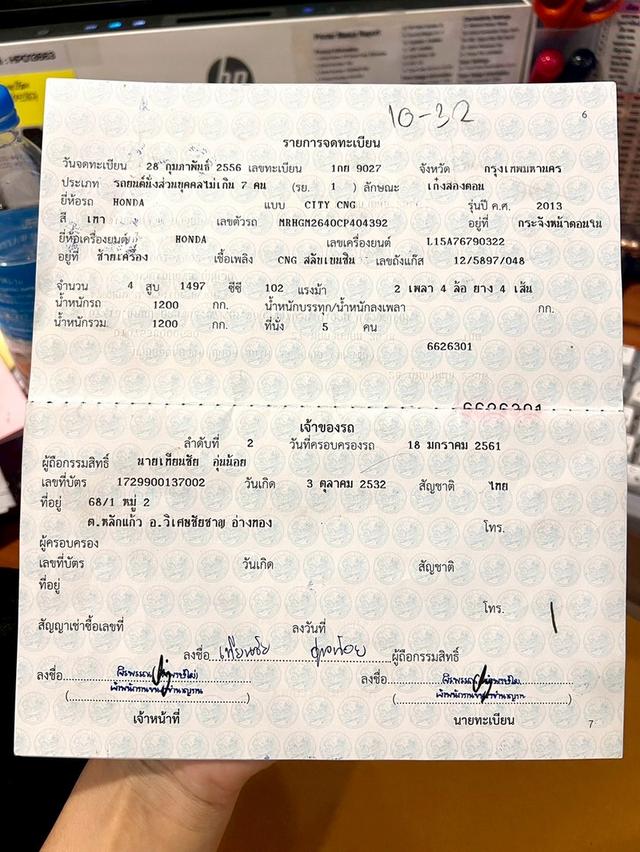 10-32
6
รายการจดทะเบียน
วันจดทะเบียน 28 กุมภาพันธ์ 2556 เลขทะเบียน 1กย 9027 จังหวัด กรุงเทพมหานคร
ประเภท รถยนต์นั่งส่วนบุคคลไม่เกิน 7 คน (รย. 1 ) ลักษณะ เก๋งสองตอน
ยี่ห้อรถ HONDA แบบ CITY CNG รุ่นปี ค.ศ. 2013
สี เทา เลขตัวรถ MRHGM2640CP404392 อยู่ที่ กระจังหน้าตอนใน
ยี่ห้อเครื่องยนต์ HONDA เลขเครื่องยนต์ L15A76790322
อยู่ที่ ซ้ายเครื่อง เชื้อเพลิง CNG สลับเบนซิน เลขถังแก๊ส 12/5897/048
จำนวน 4 สูบ 1497 ซีซี 102 แรงม้า 2 เพลา 4 ล้อ ยาง 4 เส้น
น้ำหนักรถ 1200 กก. น้ำหนักบรรทุก/น้ำหนักลงเพลา กก.
น้ำหนักรวม 1200 กก. ที่นั่ง 5 คน
6626301
6626301
เจ้าของรถ
ลำดับที่ 2 วันที่ครอบครองรถ 18 มกราคม 2561
ผู้ถือกรรมสิทธิ์ นายเทียนชัย อุ่นน้อย
เลขที่บัตร 1729900137002 วันเกิด 3 ตุลาคม 2532 สัญชาติ ไทย
ที่อยู่ 68/1 หมู่ 2
ต.หลักแก้ว อ.วิเศษชัยชาญ อ่างทอง โทร.
ผู้ครอบครอง
เลขที่บัตร วันเกิด สัญชาติ
ที่อยู่
โทร.
สัญญาเช่าซื้อเลขที่ ลงวันที่
ลงชื่อ เทียนชัย อุ่นน้อย ผู้ถือกรรมสิทธิ์
ลงชื่อ ลงชื่อ
เจ้าพนักงานขนส่งชำนาญงาน เจ้าพนักงานขนส่งชำนาญงาน
เจ้าหน้าที่ นายทะเบียน
7
hp